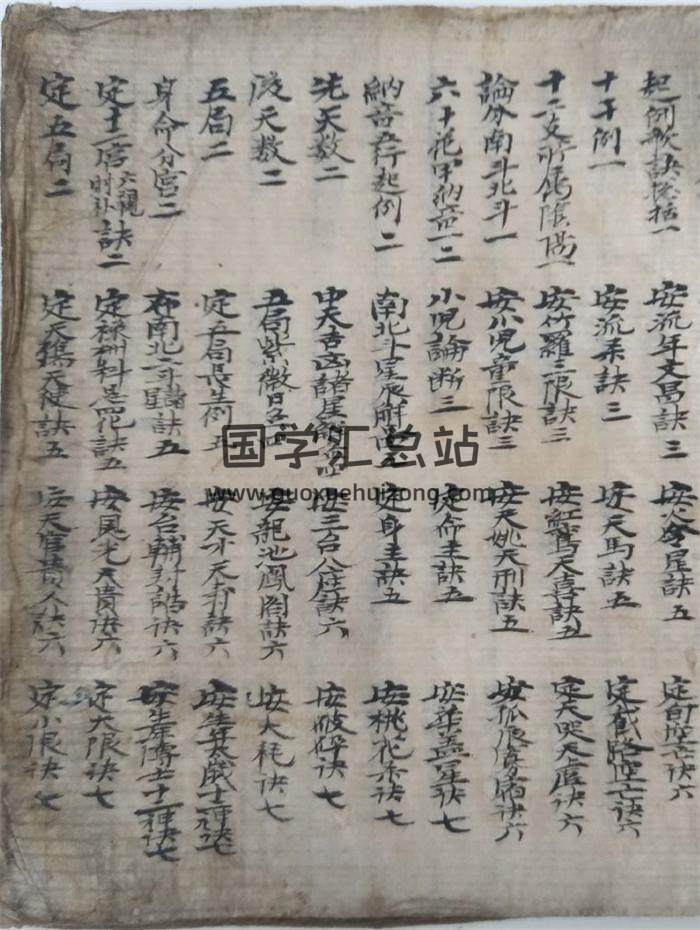 起例歌訣總括一
十干例一
十二支所属陰陽一
論分南斗北斗一
六十花甲納音一二
納音五行起例二
先天数二
後天数二
五局二
身命分宫二
定十二宫六親時补訣二
定五局二
安流年文昌訣三
安流 訣三
安竹羅三限訣三
安小児童限訣三
小児論断三
南北斗星辰解 五
中天吉凶諸星
五局紫微日 四
定五局長生例五
布南北二斗 訣五
定禄 科忌 化訣五
定天 天 訣五
安火鈴星訣五
安天馬訣五
安紅鸞天喜訣五
安天姚天刑訣五
定命主訣五
定身主訣五
安三台八座訣六
安龍池鳳阁訣六
安天才天寿訣六
安台輔封誥诀六
安恩光天貴诀六
安天官貴人訣六
定旬空亡诀六
定截路空亡诀六
定天哭天虚诀六
安孤辰寡宿诀六
安華盖星诀七
安桃花杀诀七
安破碎诀七
安大耗诀七
安生年太歲十二神诀七
安生年博士十二神诀七
定大限诀七
定小限诀七
国学汇总站
www.guoxuehuizong.com